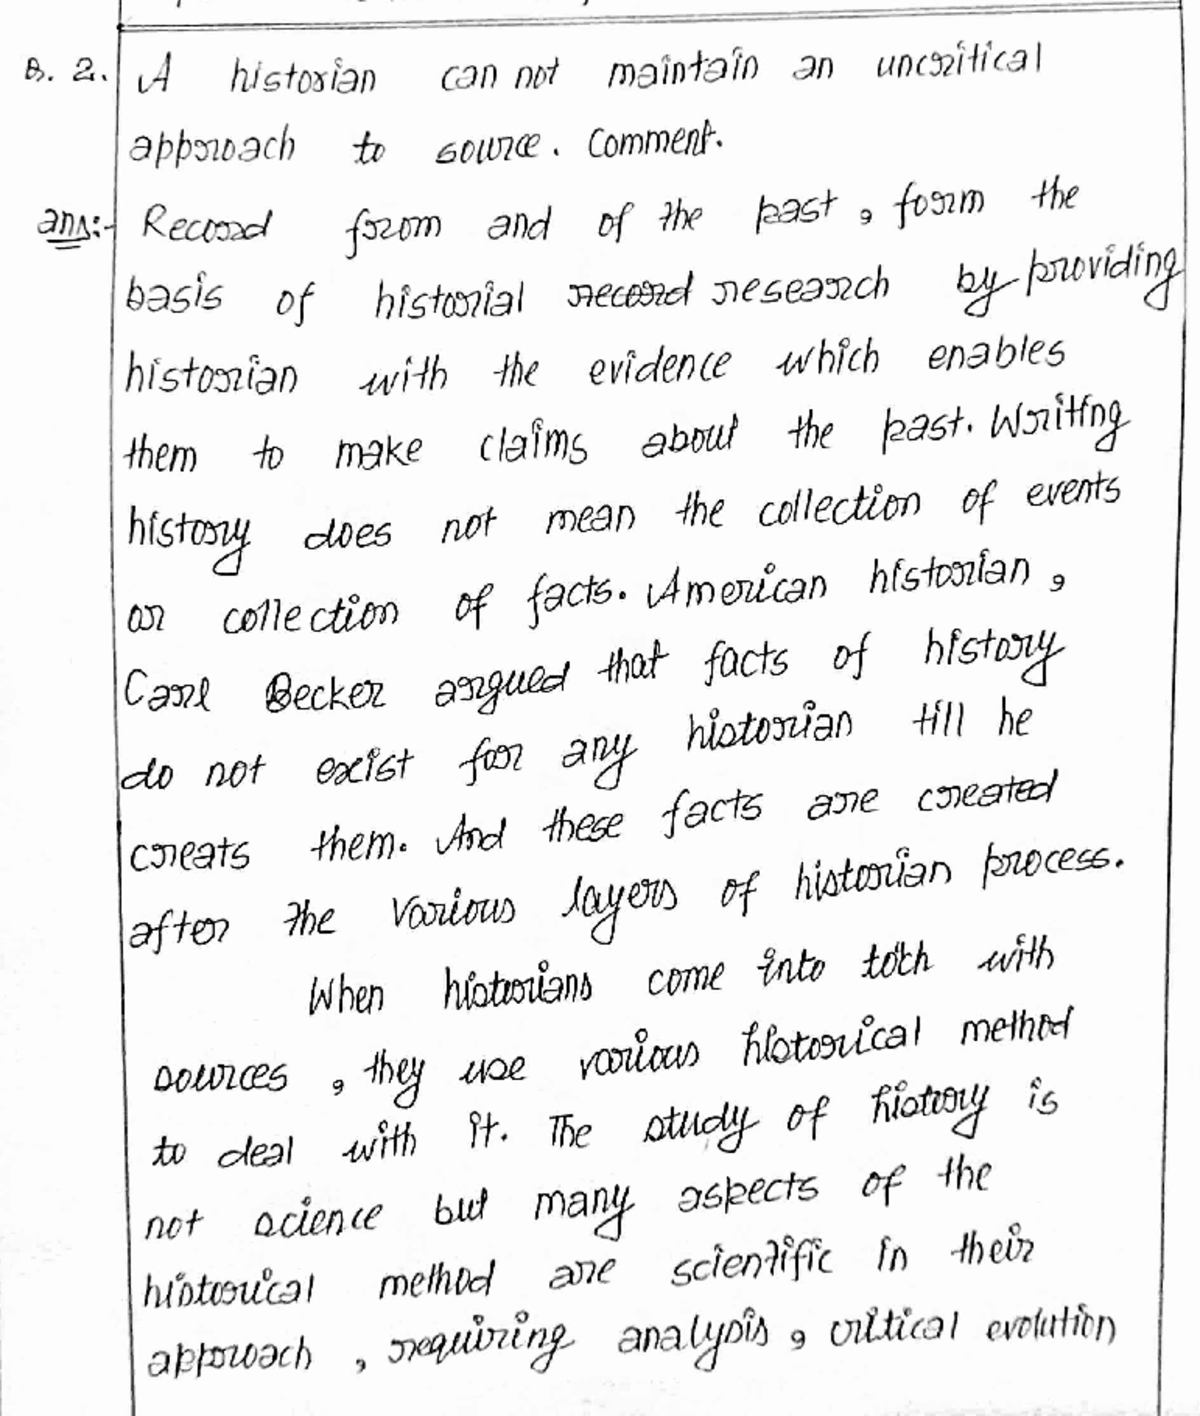 Q. 2. A historian can not maintain an uncritical
approach to source. Comment.
ans:- Record from and of the past, form the
basis of historial record research by providing
historian with the evidence which enables
them to make claims about the past. Writing
history does not mean the collection of events
or collection of facts. American historian,
Carl Becker argued that facts of history
do not exist for any historian till he
creats them. And these facts are created
after the various layers of historian process.
When historians come into toth with
sources, they use various historical method
to deal with it. The study of history is
not science but many aspects of the
historical method are scientific in their
approach, requiring analysis, critical evolution